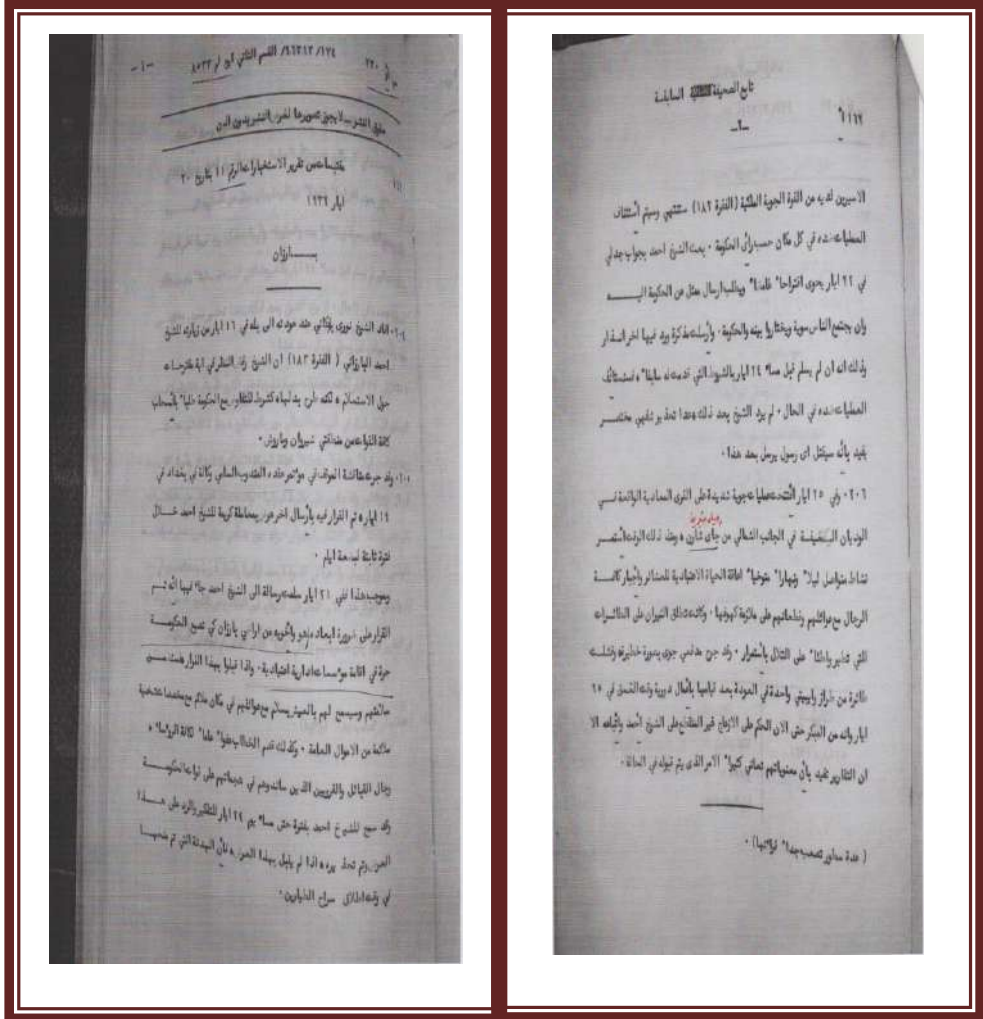 -١-
١٧٤/ ٩٦٣١٢/ القسم الثاني كي اي ر ٨٥٣٣
٢٢٠
حقوق النشر - لا يجوز تصويرها لغرض النشر بدون اذن
مقتبسات من تقرير الاستخبارات الرقم ١١ بتاريخ ٣٠
ايار ١٩٣٢
بـــارزان
٢٠٤- افاد الشيخ نوري بالاني عند عودته الى بله في ١٦ ايار من زيارته للشيخ
احمد البارزاني ( الفقرة ١٨٣) ان الشيخ رفض النظر في اية مقترحات
حول الاستسلام ، لكنه طرح بدلها، كشرط للتفاوض مع الحكومة طلبا" بانسحاب
كافة القوات من منطقتي شيروان وبازوش ٠
٢٠٥- وقد جرت مناقشة الموقف في مؤتمر عقده المندوب السامي وكالة في بغداد في
١٩ ايار، تم القرار فيه بأرسال اخر عرض بمعاملة كريمة للشيخ احمد خــلال
فترة ثابتة لبضعة ايام ٠
وبموجب هذا ففي ٢١ ايار سلمت رسالة الى الشيخ احمد جاء فيها انه تـم
القرار على ضرورة ابعاد هو واخويه من اراضي بارزان كي تصبح الحكومــة
حرة في اقامة مؤسسات ادارية اعتيادية ٠ واذا قبلوا بهذا القرار
وسيسمح لهم بالعيش بسلام مع عوائلهم في مكان ملائم مع مخصصات شخصية
ملائمة من الاموال العامة ٠ وكذلك تضم الخطاب عفوا" عاما" لكافة الرؤساء ،
ورجال القبائل والقرويين الذين ساندوهم في هجماتهم على قوات الحكومــة
وقد سمح للشيخ احمد بفترة حتى مساء يوم ٢٤ ايار للتفكير والرد على هــذا
العرض وتم تحذيره ، اذا لم يقبل بهذا العرض ، فأن الهدنة التي تم منحهـا
في وقت اطلاق سراح الطيارين ٠
تابع الصحيفة السابقة
-٢-
١١٦٢
الاسيرين لديه من القوة الجوية الملكية (الفقرة ١٨٢) ستنتهي وسيتم أستئناف
العمليات ضده في كل مكان حسب رأي الحكومة ٠ بعث الشيخ احمد بجواب جدلي
في ٢٢ ايار يحوي اقتراحا" غامضا" ويطلب ارسال ممثل من الحكومة اليــــه
وان يجتمع الناس سوية ويختاروا بينه والحكومة ٠ وأرسلت مذكرة ورد فيها اخر انـذار
وذلك انه ان لم يسلم قبل مساء ٢٤ ايار بالشروط التي قدمت له سابقا" ، ستستأنف
العمليات ضده في الحال ٠ لم يرد الشيخ بعد ذلك عدا تحذير شفهي مختصــر
يفيد بأنه سيقتل اي رسول يرسل بعد هذا ٠
٢٠٦- وفي ٢٥ ايار أتخذت عمليات جوية شديدة على القوى المعادية الواقعة فــي
الوديان الضيقة في الجانب الشمالي من جاي شازن ، ومنذ ذلك الوقت أستمــر
نشاط متواصل ليلا" ونهارا" متوخيا" اعاقة الحياة الاعتيادية للعشائر واجبار كافــة
الرجال مع عوائلهم وقطعانهم على ملازمة كهوفها ٠ وكانت تطلق النيران على الطائــرات
التي تطير واطئا" على التلال بأستمرار ٠ وقد جرح مدفعي جوي بصورة خطيرة، وفشلـت
طائرة من طراز وابيتي واحدة في العودة بعد قيامها بأعمال دورية وقت القصف في ٢٥
ايار وانه من المبكر حتى الان الحكم على الازعاج غير المنقطع على الشيخ أحمد واتباعه الا
ان التقارير تفيد بأن معنوياتهم تعاني كثيرا" الامر الذي يتم قبوله في الحالة ٠
( عدة سطور تصعب جدا" قرائتها) ٠